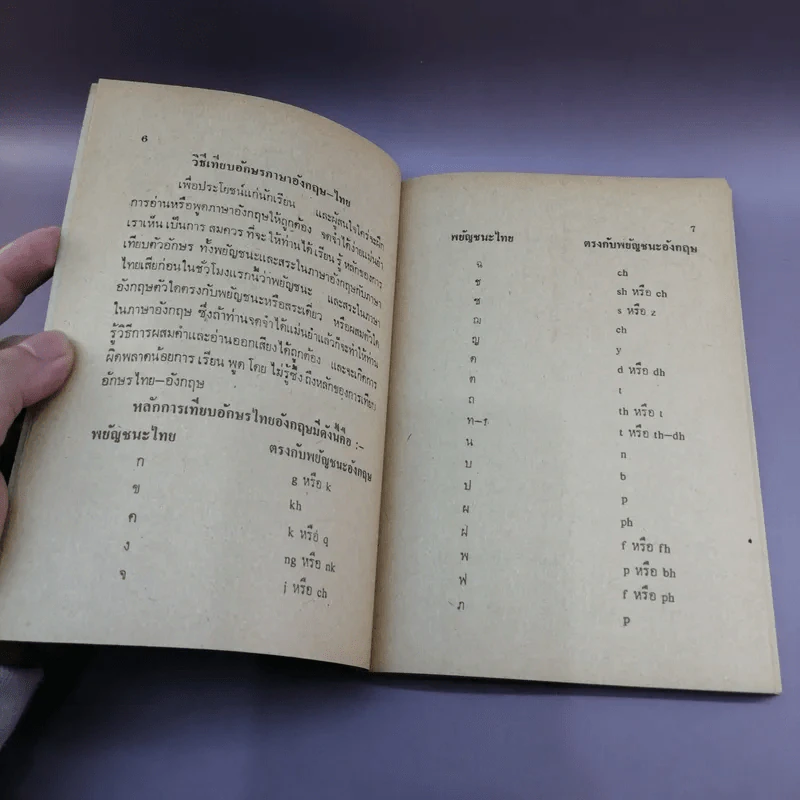 6
วิธีเทียบอักษรภาษาอังกฤษ–ไทย
เพื่อประโยชน์แก่นักเรียน และผู้สนใจใคร่จะฝึก
การอ่านหรือพูดภาษาอังกฤษให้ถูกต้อง จดจำได้ง่ายแม่นยำ
เราเห็น เป็นการ สมควร ที่จะ ให้ท่านได้ เรียน รู้ หลักของการ
เทียบตัวอักษร ทั้งพยัญชนะและสระในภาษาอังกฤษกับภาษา
ไทยเสียก่อนในชั่วโมงแรกนี้ว่าพยัญชนะ และสระในภาษา
อังกฤษตัวใดตรงกับพยัญชนะหรือสระเดี่ยว หรือผสมตัวใด
ในภาษาอังกฤษ ซึ่งถ้าท่านจดจำได้แม่นยำแล้วก็จะทำให้ท่าน
รู้วิธีการผสมคำและอ่านออกเสียงได้ถูกต้อง และจะเกิดการ
ผิดพลาดน้อยการ เรียน พูด โดย ไม่รู้ซึ้ง ถึงหลักของการเทียบ
อักษรไทย–อังกฤษ
หลักการเทียบอักษรไทยอังกฤษมีดังนี้คือ :–
พยัญชนะไทย ตรงกับพยัญชนะอังกฤษ
ก g หรือ k
ข kh
ค k หรือ q
ง ng หรือ nk
จ j หรือ ch
7
พยัญชนะไทย ตรงกับพยัญชนะอังกฤษ
ฉ ch
ช sh หรือ ch
ซ s หรือ z
ฌ ch
ญ y
ด d หรือ dh
ต t
ถ th หรือ t
ท–ธ t หรือ th–dh
น n
บ b
ป p
ผ ph
ฝ f หรือ fh
พ p หรือ bh
ฟ f หรือ ph
ภ p